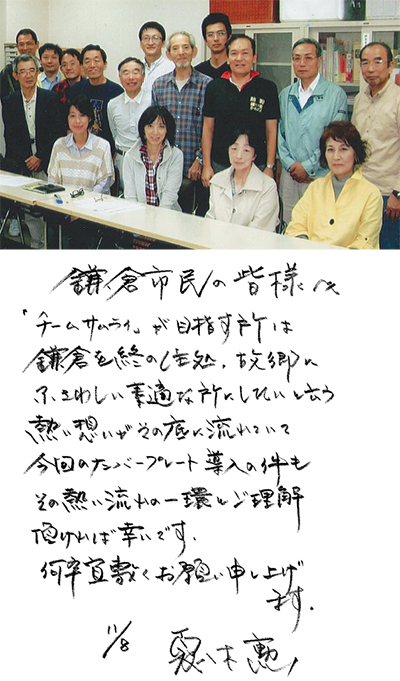 鎌倉市民の皆様へ
「チームサムライ」が目指す所は
鎌倉を終の住処、故郷に
ふさわしい素適な所にしたいと云う
熱い想いがその底に流れていて
今回のナンバープレート導入の件も
その熱い流れの一環とご理解
頂ければ幸いです。
何卒宜敷くお願い申し上げ
ます。
11/8 夏八木勲